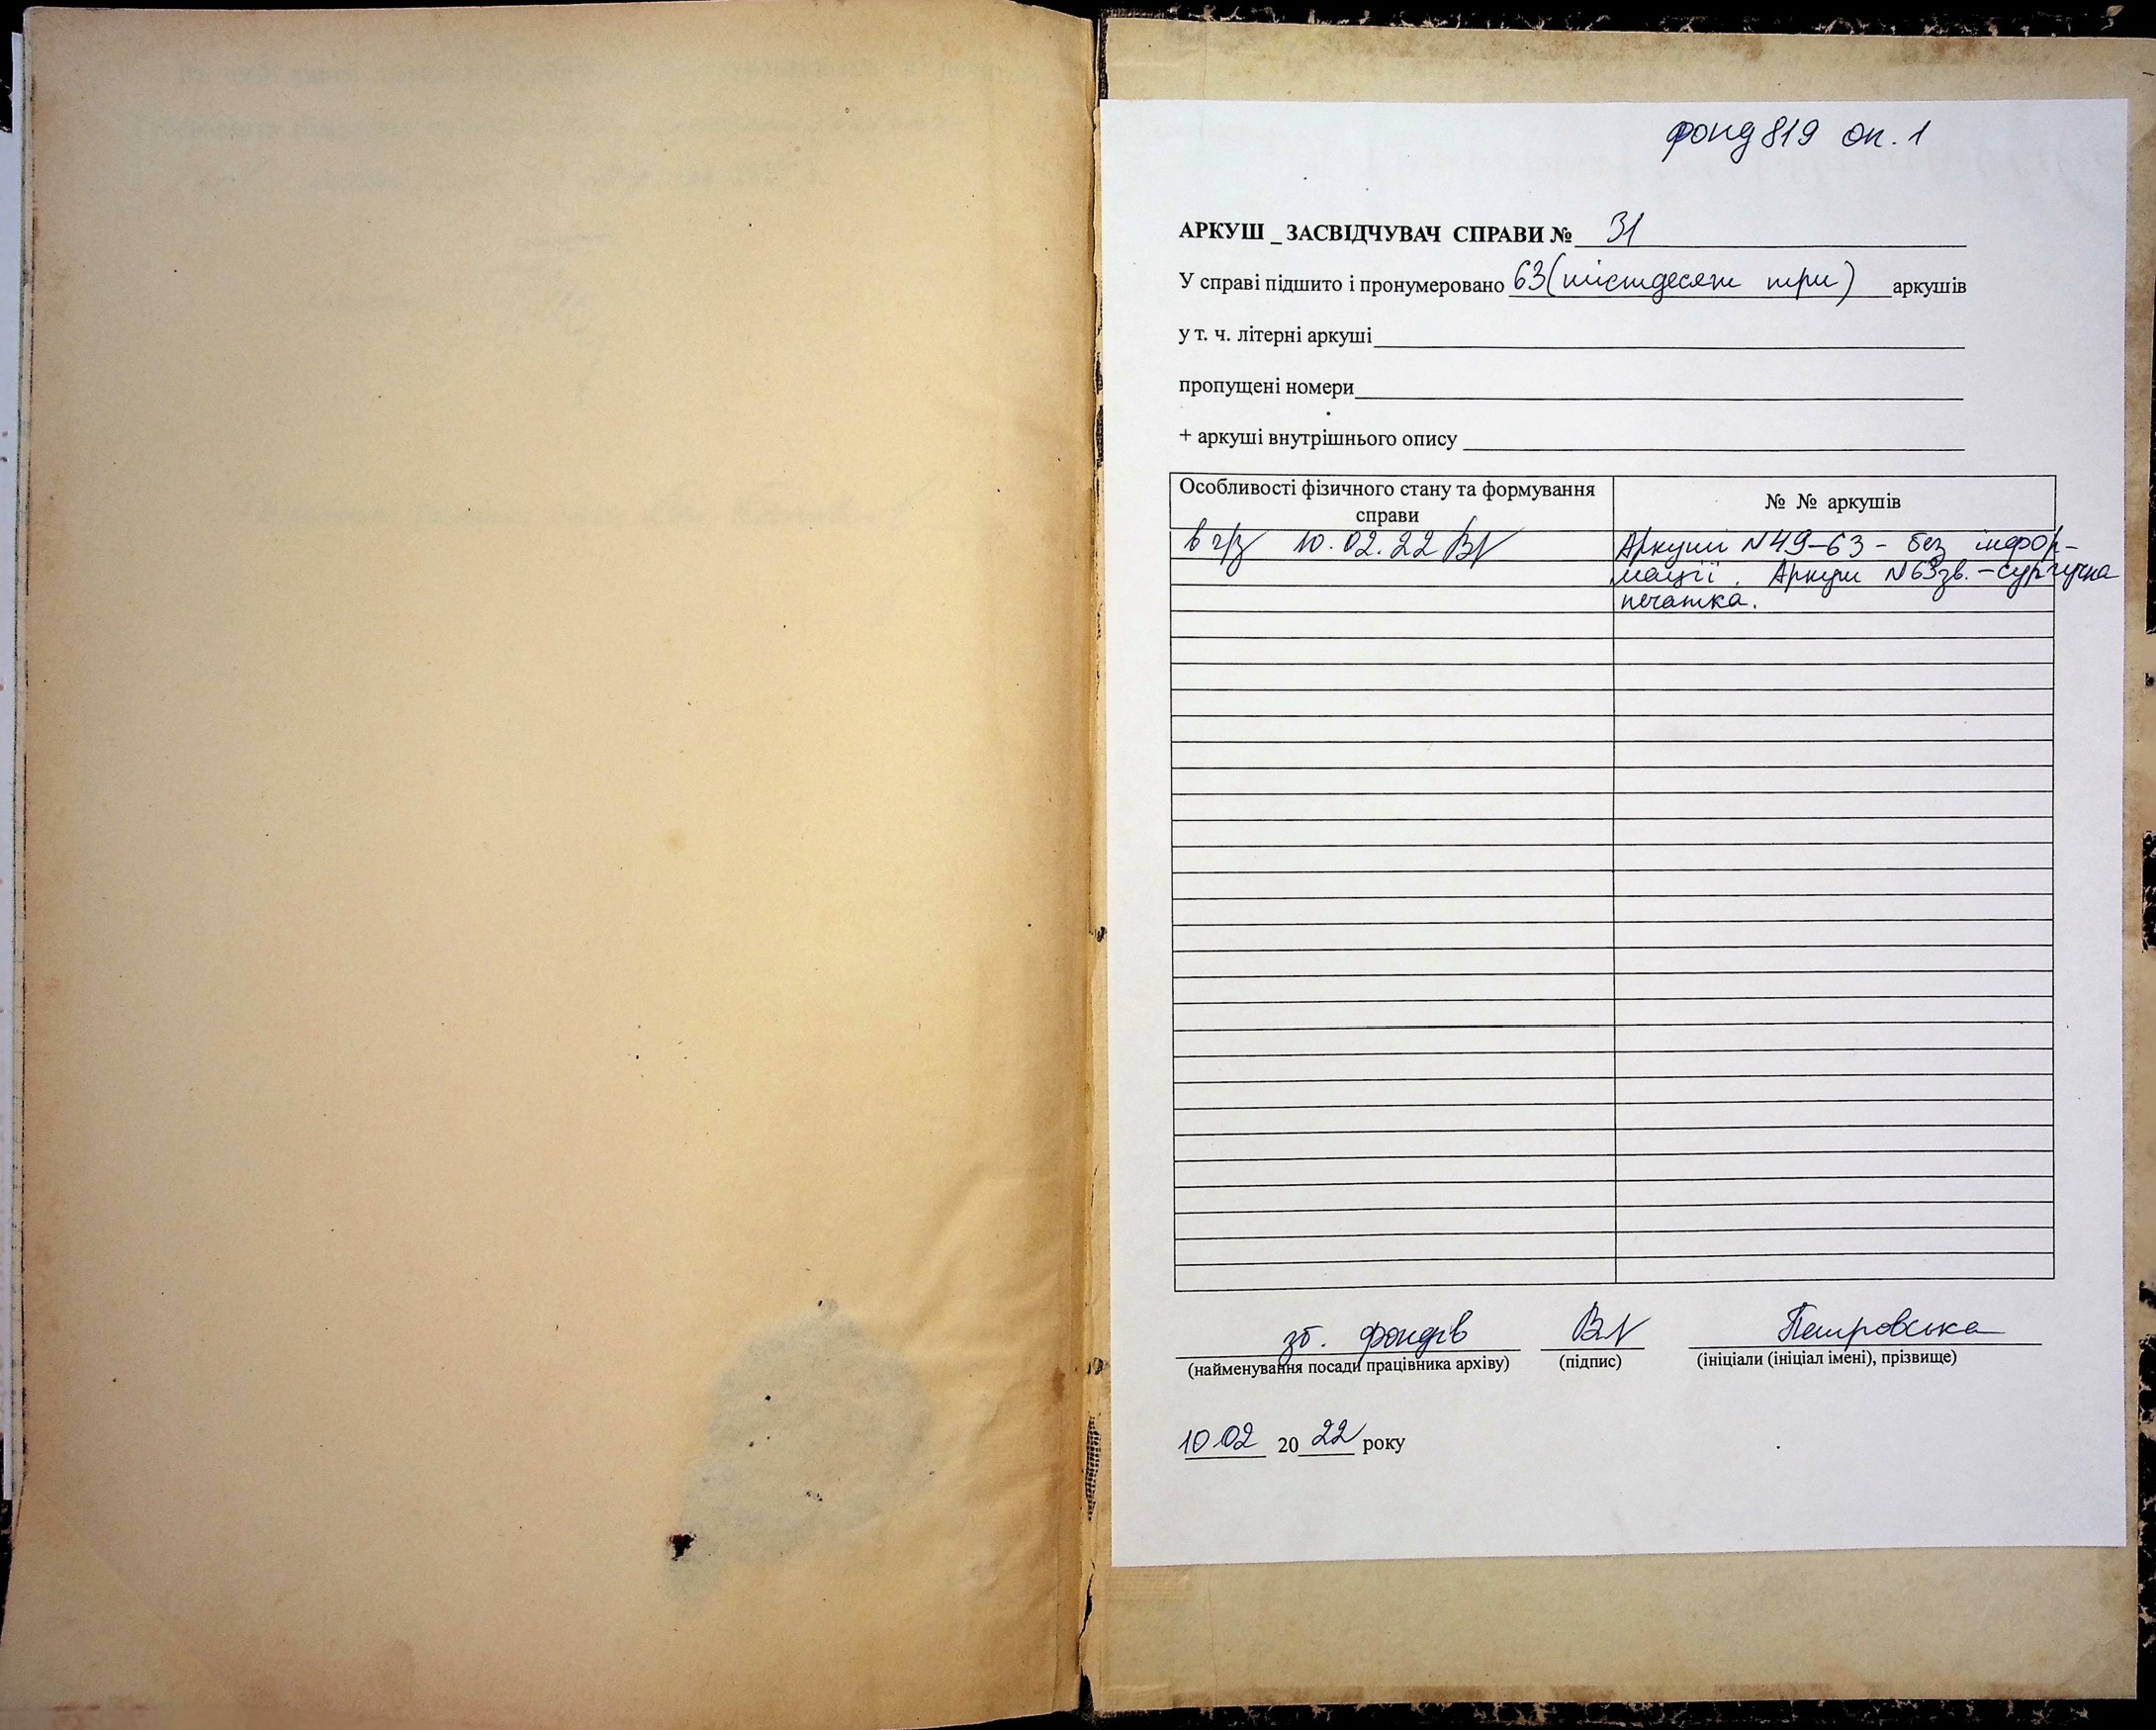 фонд 819 оп. 1
АРКУШ _ ЗАСВІДЧУВАЧ СПРАВИ № 31
У справі підшито і пронумеровано 63 (шістдесят три) аркушів
у т. ч. літерні аркуші
пропущені номери
+ аркуші внутрішнього опису
Особливості фізичного стану та формування
справи
№ № аркушів
в г/з 10.02.22
Аркуші N49-63 - без інфор-
мації. Аркуш N63зв. - сургучна
печатка.
зб. фондів Петровська
(найменування посади працівника архіву) (підпис) (ініціали (ініціал імені), прізвище)
10.02 2022 року